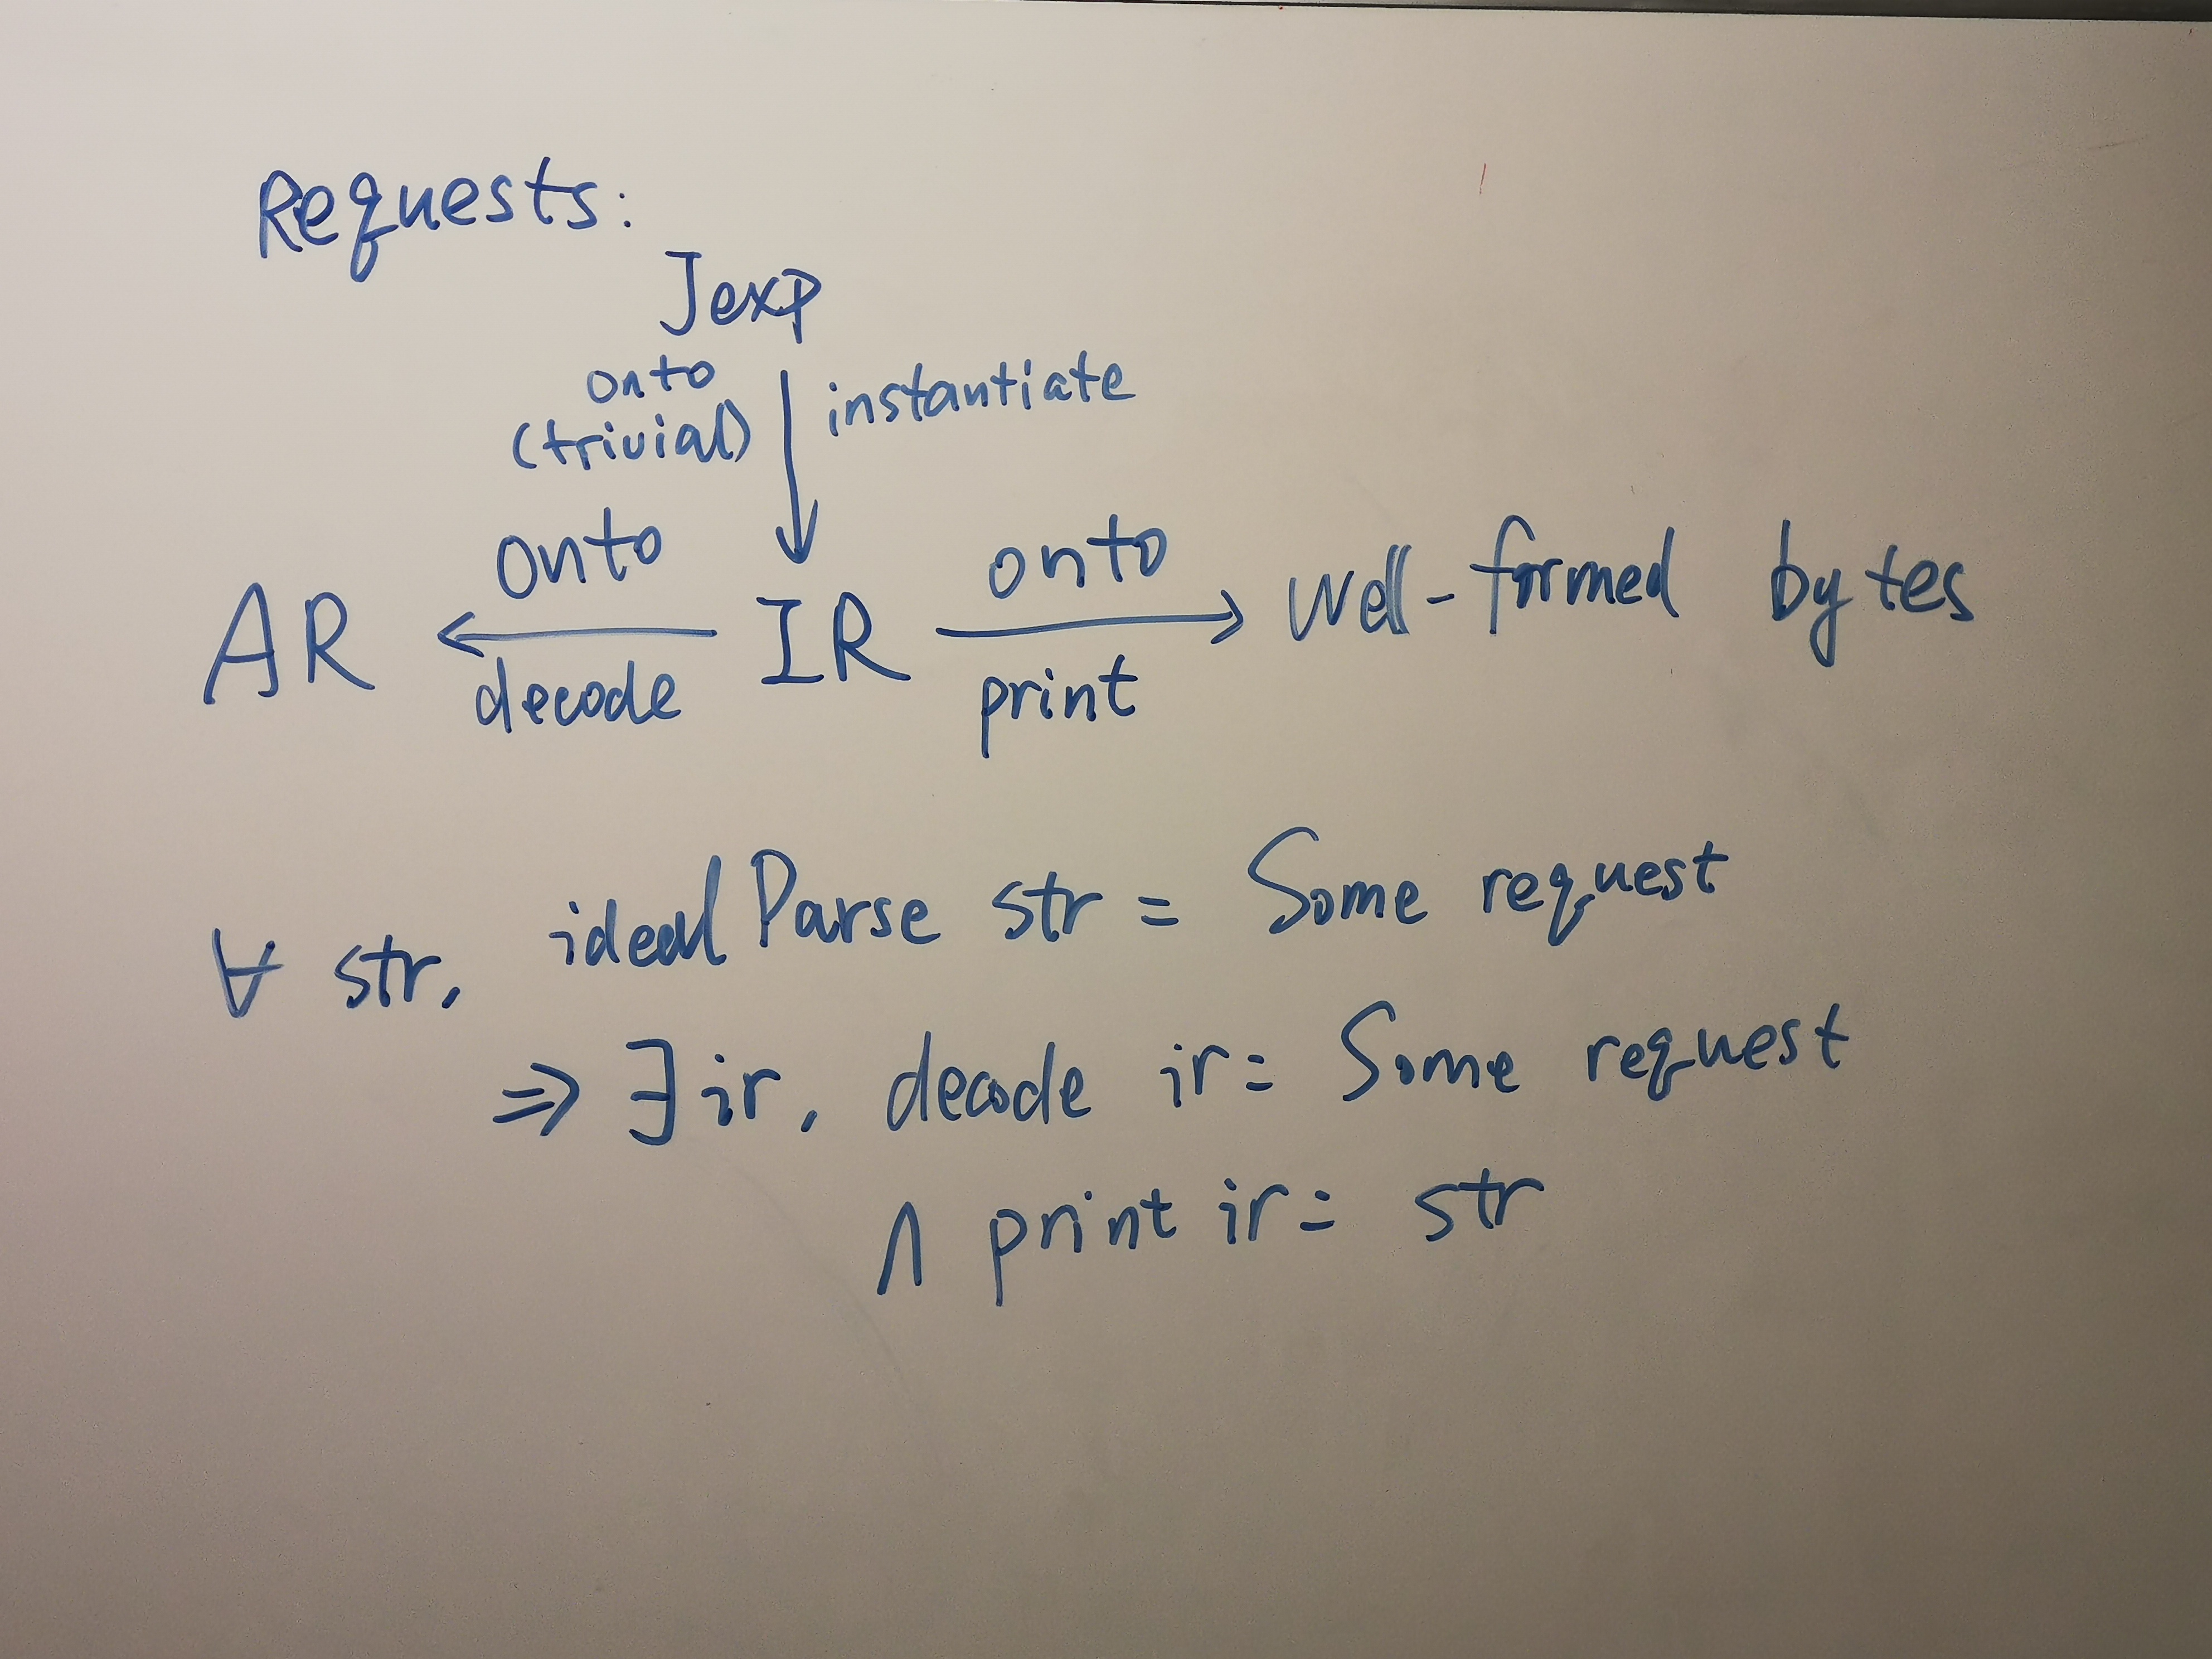 Requests:
Jexp
onto
(trivial)
instantiate
onto
onto
AR ← IR → well-formed bytes
decode
print
∀ str, idealParse str = Some request
⇒ ∃ ir, decode ir = Some request
∧ print ir = str